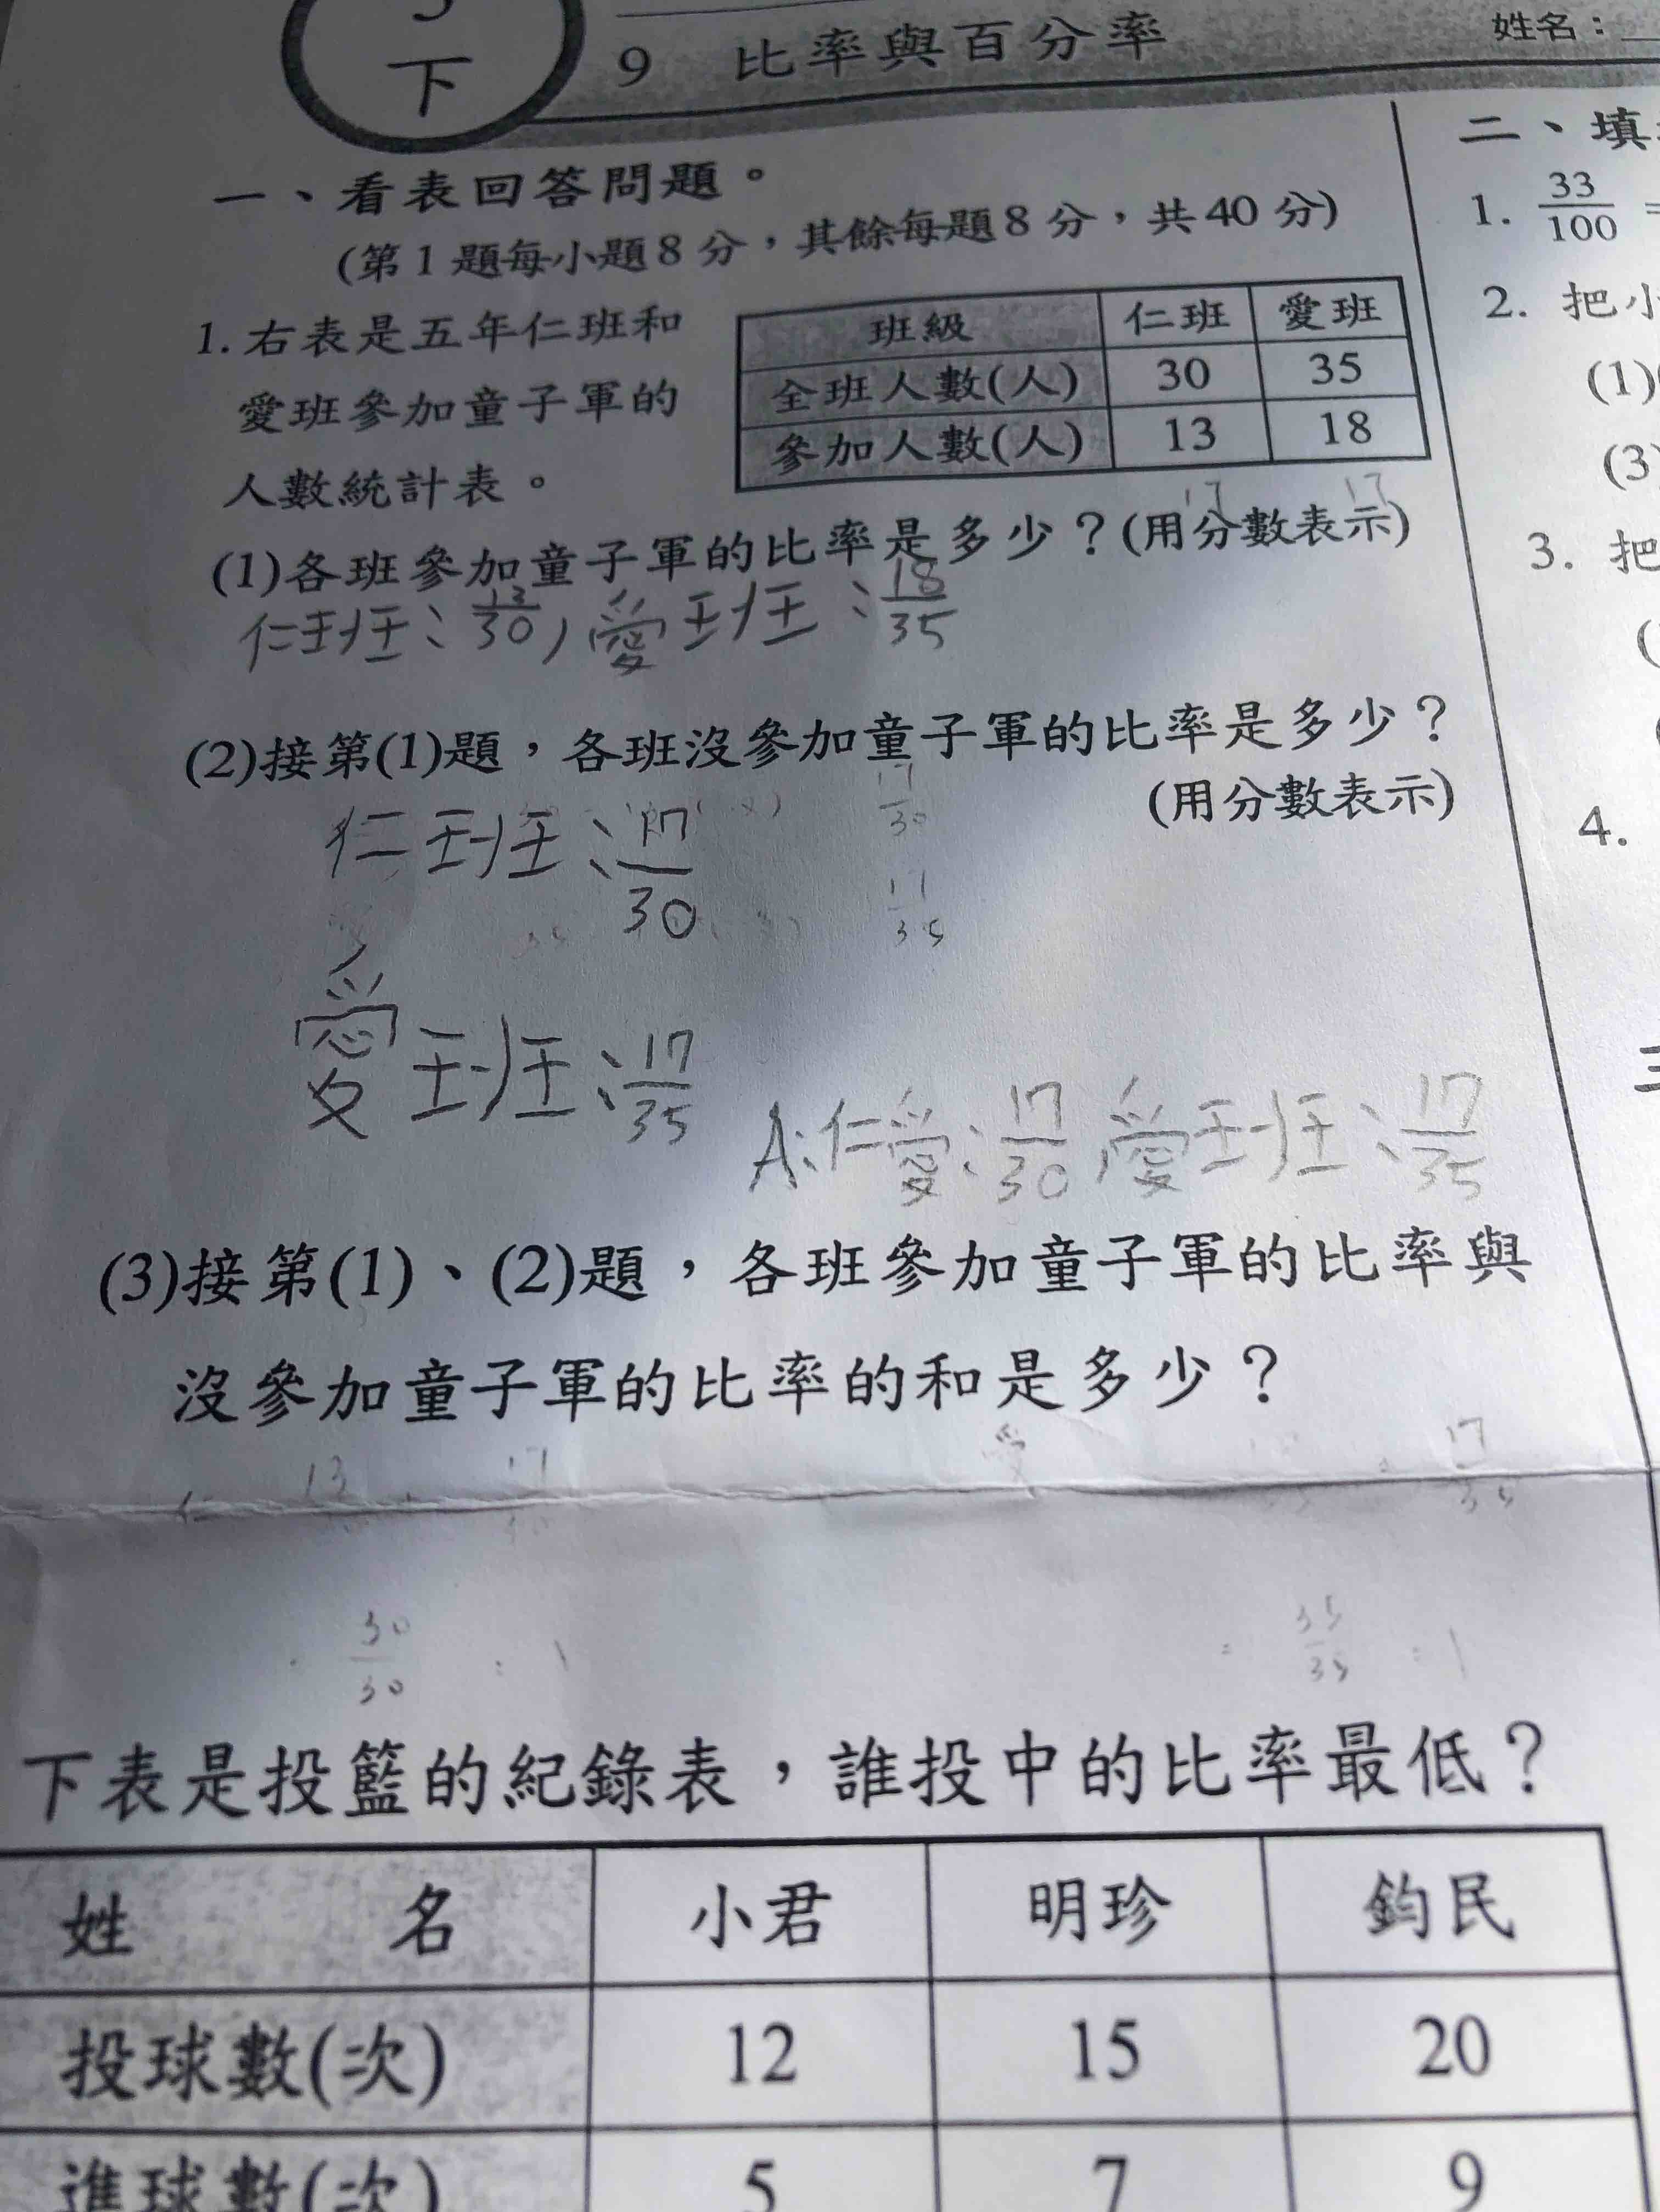 下
9 比率與百分率
姓名：
一、看表回答問題。
(第1題每小題8分，其餘每題8分，共40分)
1. 右表是五年仁班和
愛班參加童子軍的
人數統計表。
班級 仁班 愛班
全班人數(人) 30 35
參加人數(人) 13 18
17 17
(1)各班參加童子軍的比率是多少？(用分數表示)
仁班：13/30，愛班：18/35
(2)接第(1)題，各班沒參加童子軍的比率是多少？
(用分數表示)
仁班：17/30
17/30
17/35
愛班：17/35
A：仁愛：17/30，愛班：17/35
(3)接第(1)、(2)題，各班參加童子軍的比率與
沒參加童子軍的比率的和是多少？
仁 13 17 愛 17/35
30/30 = 1 = 35/35 = 1
下表是投籃的紀錄表，誰投中的比率最低？
姓名 小君 明珍 鈞民
投球數(次) 12 15 20
進球數(次) 5 7 9
二、填
1. 33/100 =
2. 把小
(1)
(3)
3. 把
4.